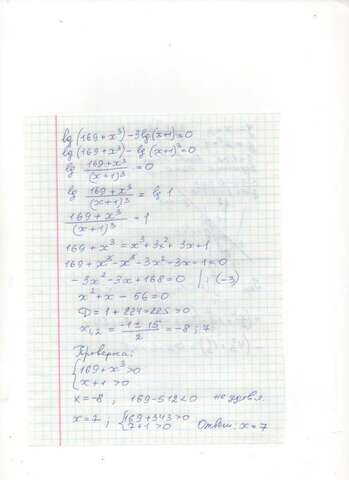 lg(169+x³)-3lg(x+1)=0
lg(169+x³)-lg(x+1)³=0
lg (169+x³)/(x+1)³ =0
lg (169+x³)/(x+1)³ = lg 1
(169+x³)/(x+1)³ =1
169+x³=x³+3x²+3x+1
169+x³-x³-3x²-3x-1=0
-3x²-3x+168=0 /:(-3)
x²+x-56=0
D=1+224=225>0
x₁,₂ = (-1±15)/2 =-8; 7
Проверка:
{169+x³>0
x+1>0
x=-8; 169-512<0 не удовл.
x=7; {169+343>0
7+1>0 Ответ: x=7